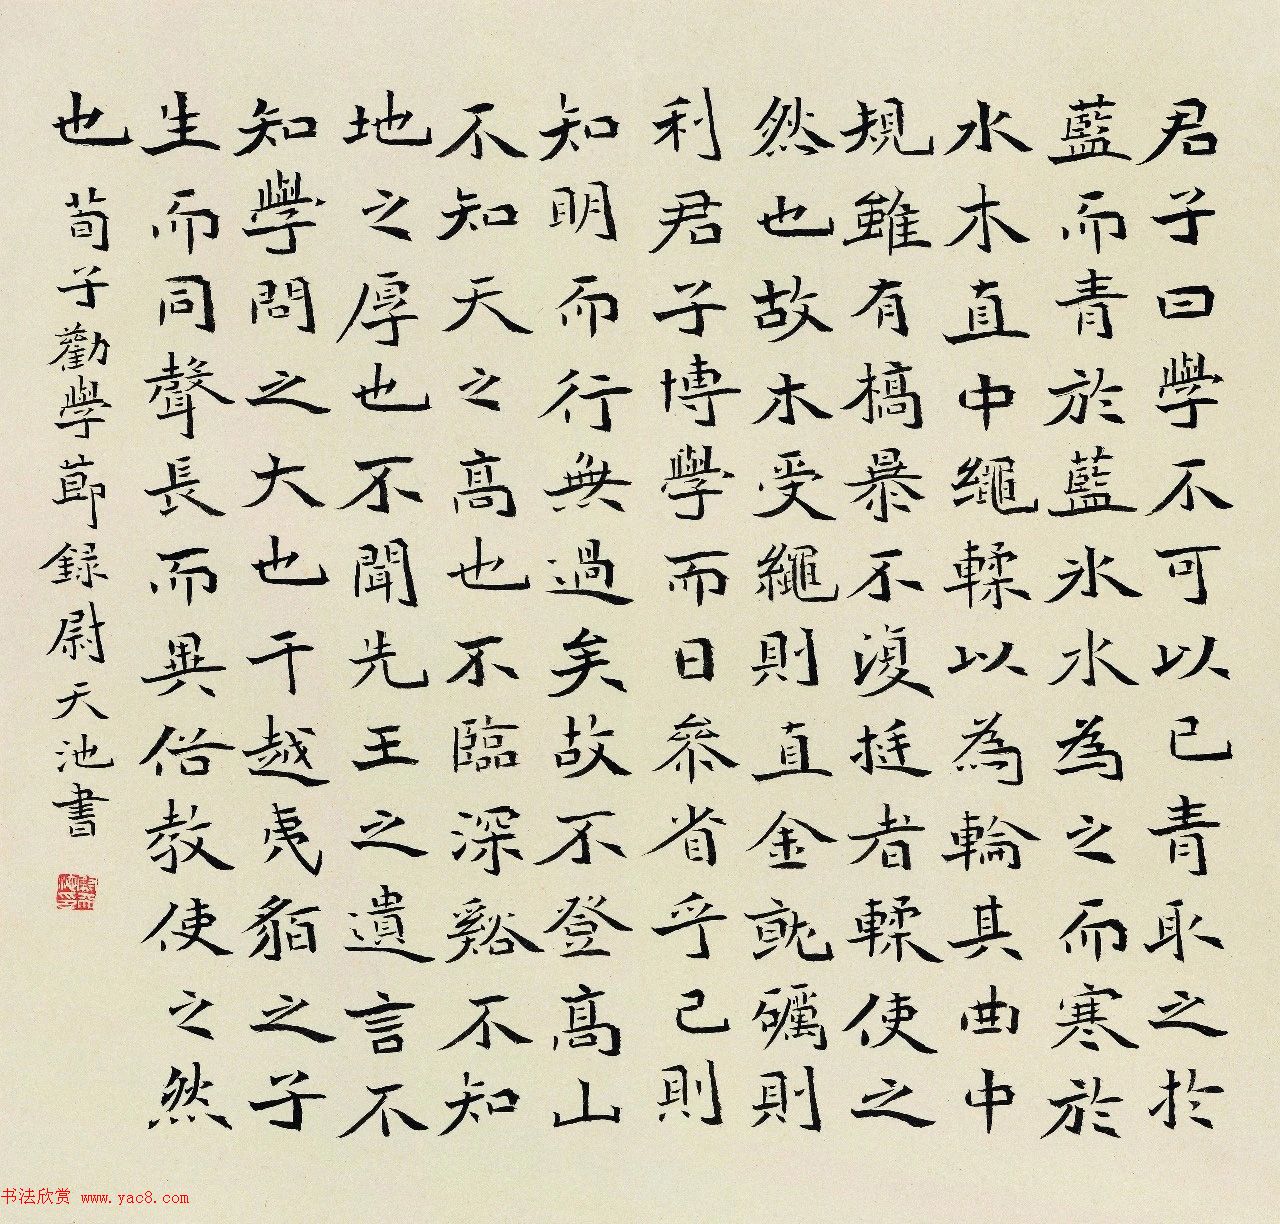 君子曰學不可以已青取之於
藍而青於藍冰水為之而寒於
水木直中繩輮以為輪其曲中
規雖有槁暴不復挺者輮使之
然也故木受繩則直金就礪則
利君子博學而日參省乎己則
知明而行無過矣故不登高山
不知天之高也不臨深谿不知
地之厚也不聞先王之遺言不
知學問之大也干越夷貊之子
生而同聲長而異俗教使之然
也 荀子勸學節録尉天池書
书法欣赏 www.yac8.com